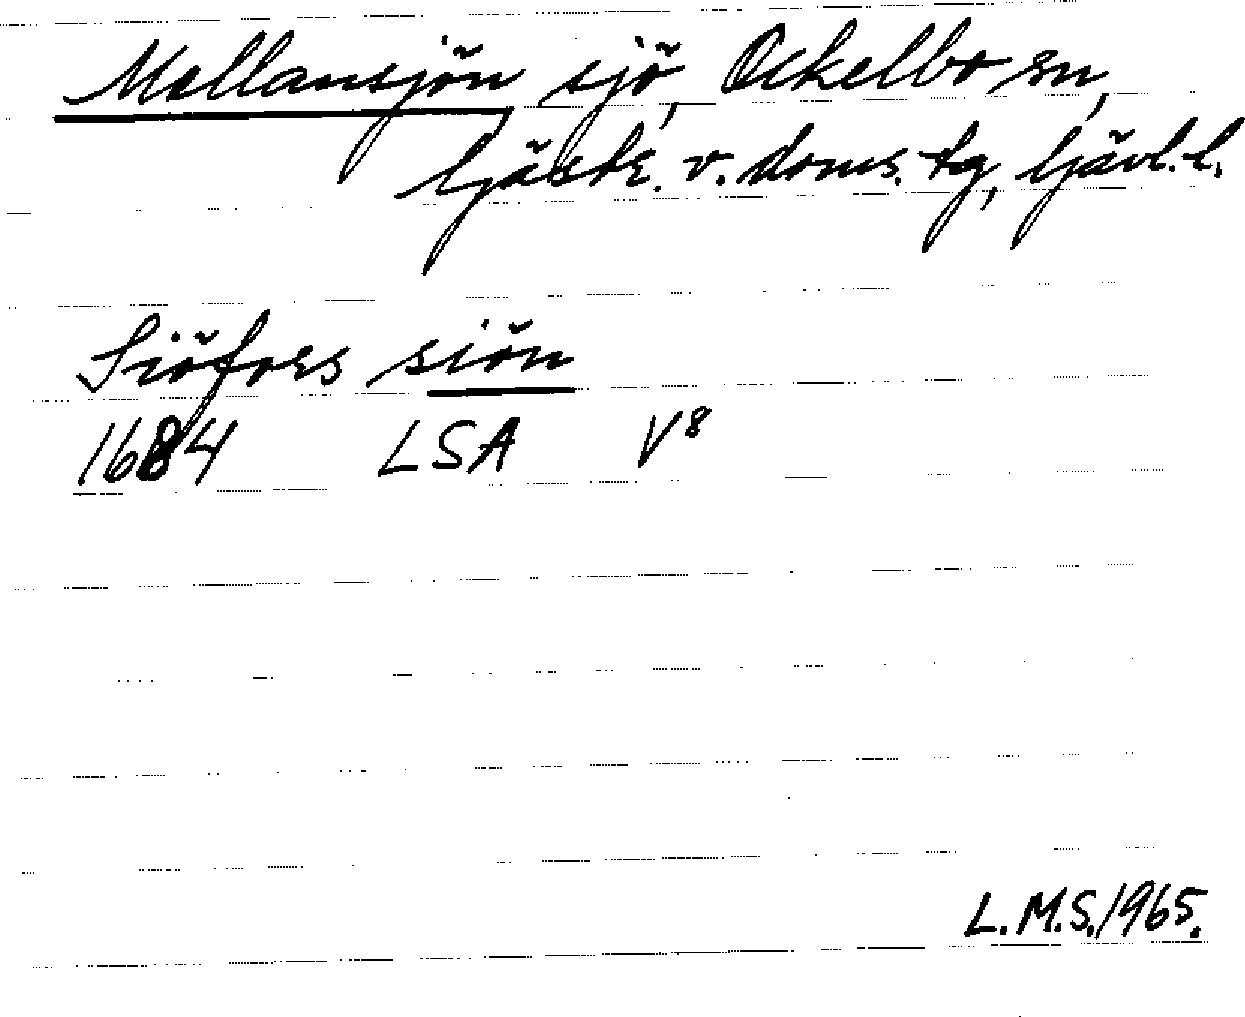 Mellansjön sjö, Ockelbo sn,
Gästr. v. doms. tg, Gävl. l.
Siöfors siön
1684 LSA V8
L.M.S. 1965.